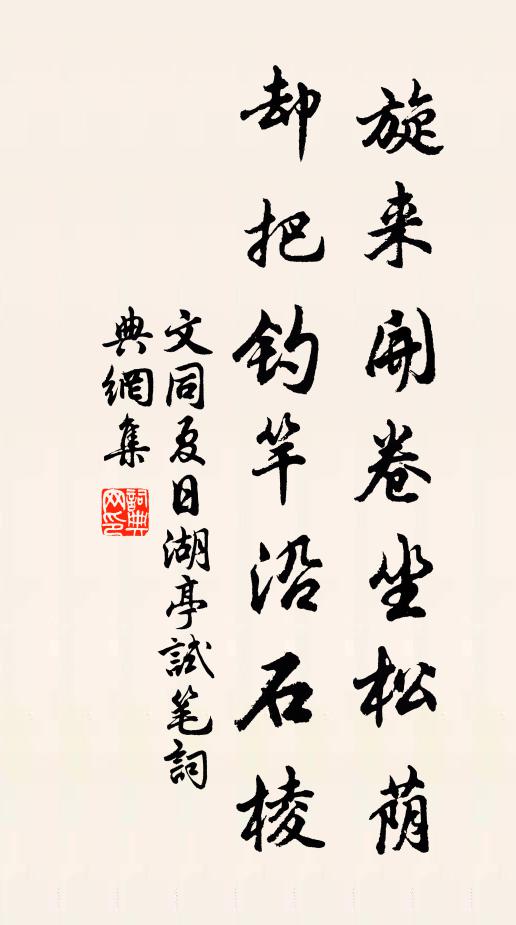 旋来開卷坐松荫
却把钓竿沿石棱
文同夏日湖亭試笔詞
典網集
詞典
网印